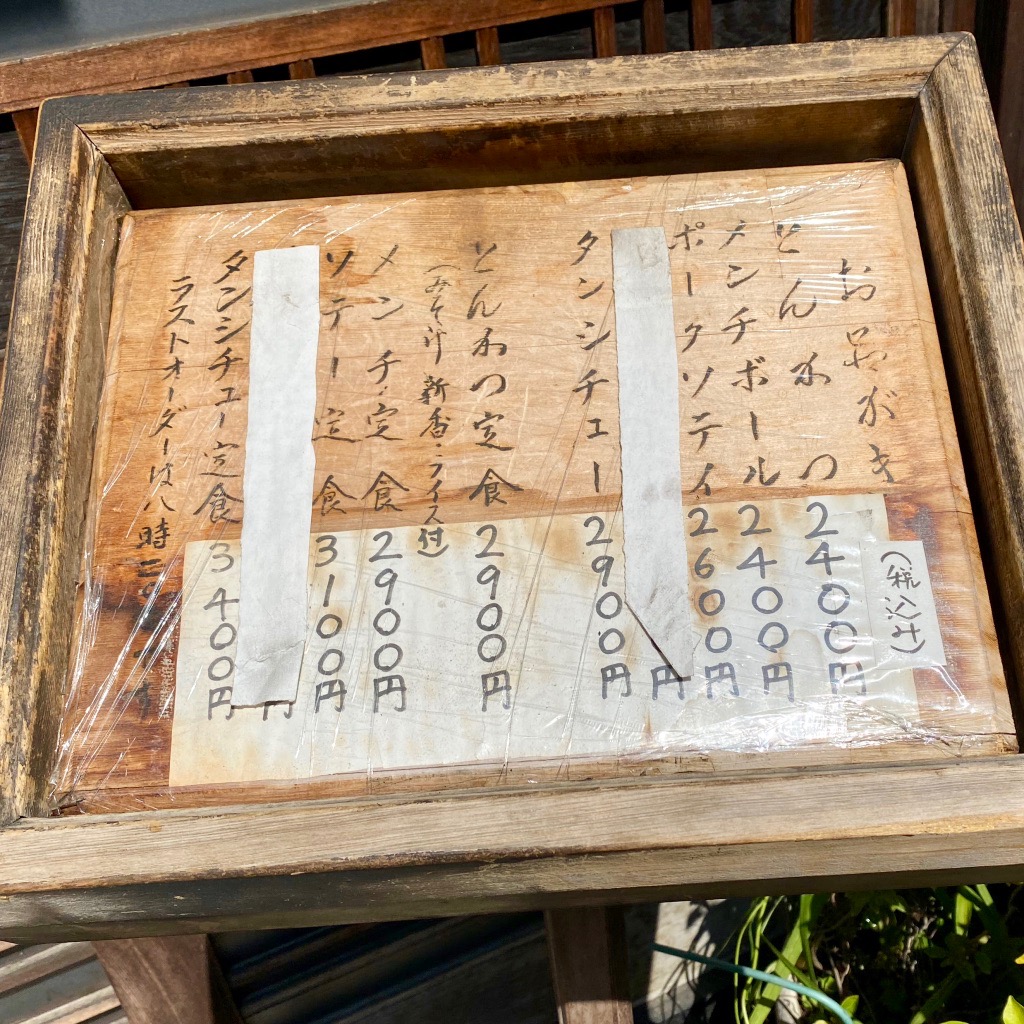 おしながき
(税込み)
とんかつ 2400円
メンチボール 2400円
ポークソテイ 2600円
円
タンシチュー 2900円
とんかつ定食 2900円
(みそ汁 新香・ライス付)
メンチ定食 2900円
ソテー定食 3100円
円
タンシチュー定食 3400円
ラストオーダーは八時